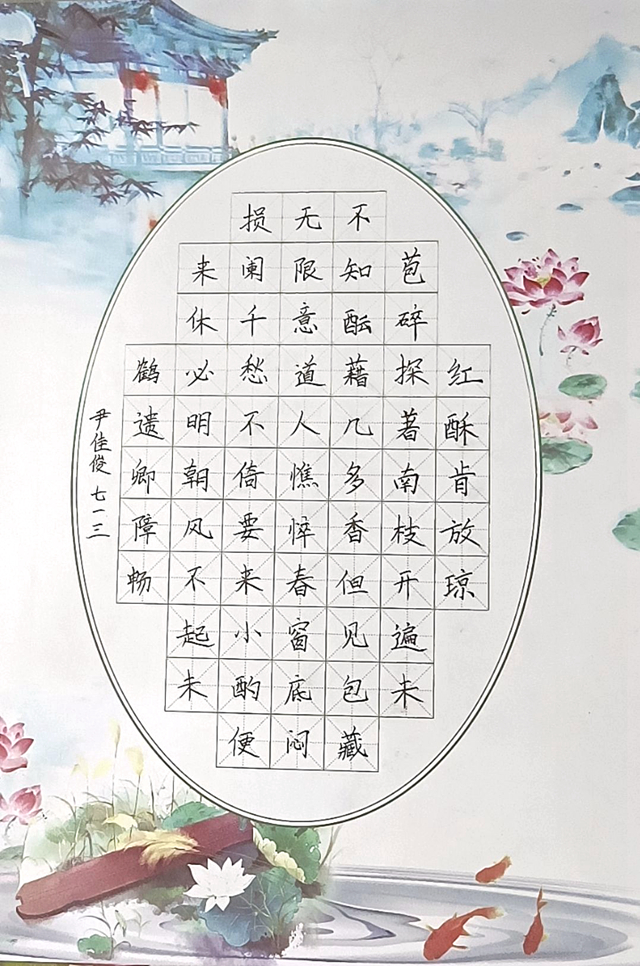 红酥肯放琼
苞碎探著南枝开遍未
不知酝藉几多香但见包藏
无限意道人憔悴春窗底闷
损阑千愁不倚要来小酌便
来休必明朝风不起未
鹤遗卿障畅
尹佳俊 七一三